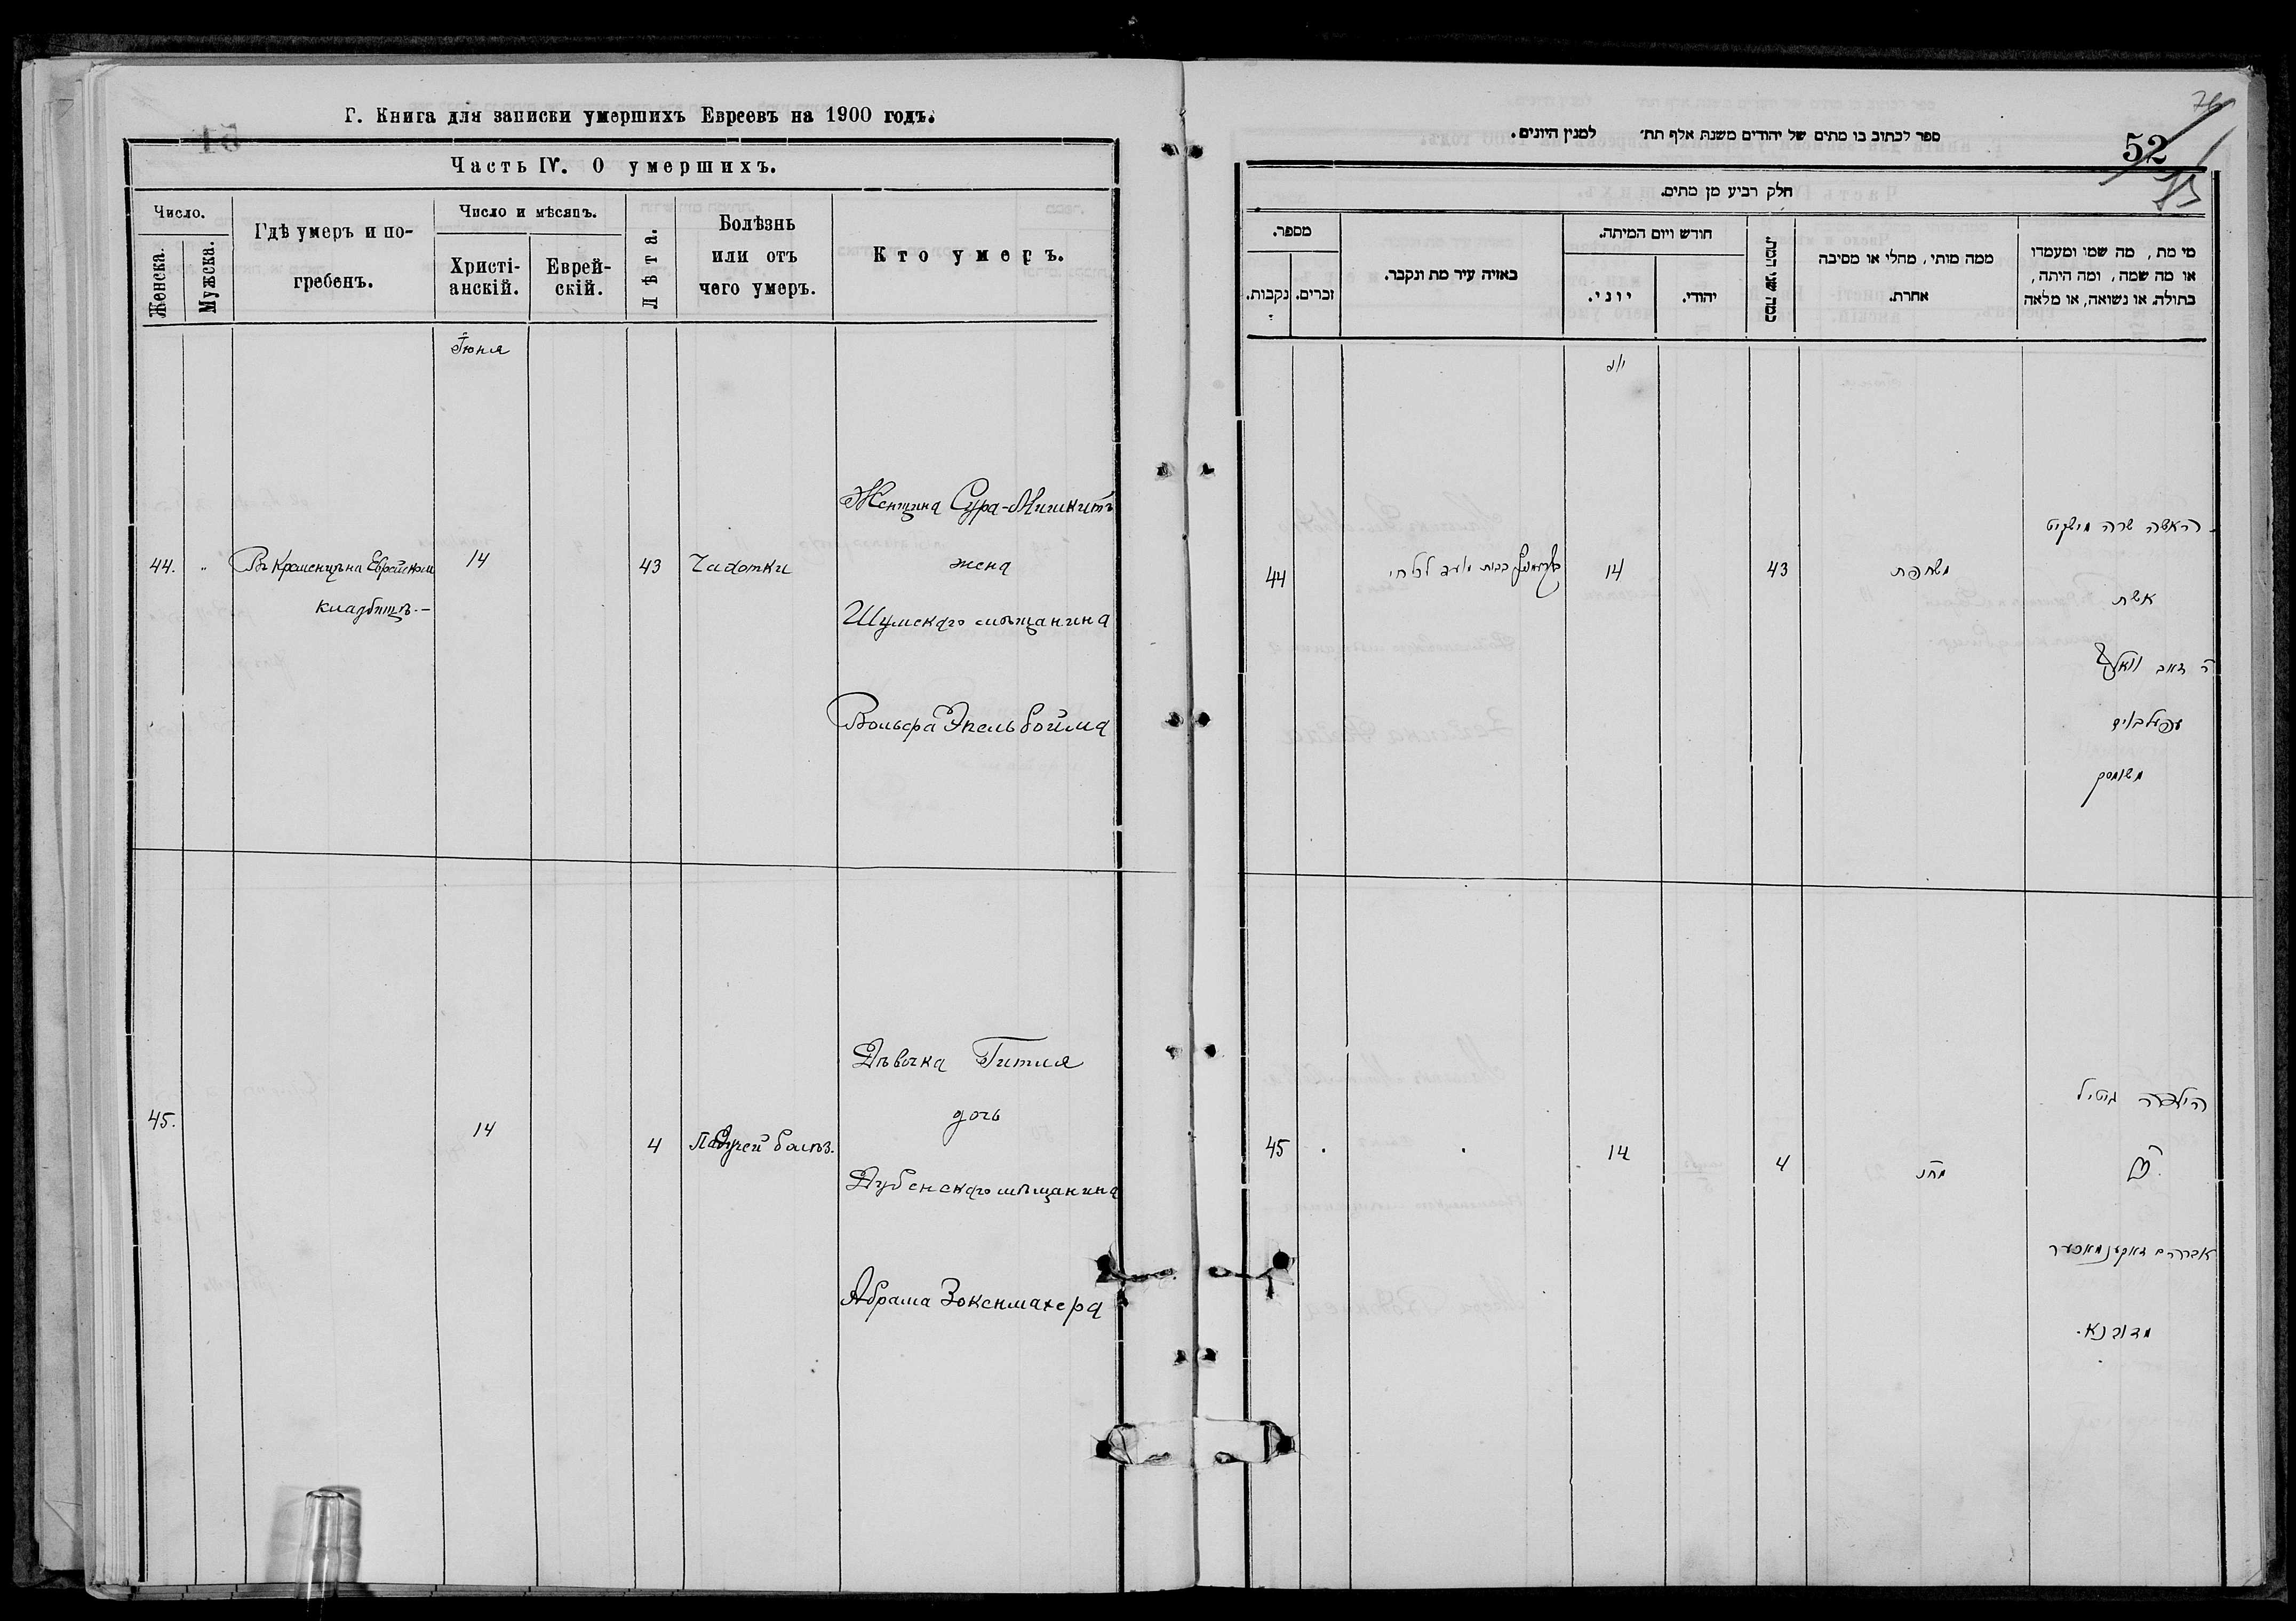 Г. Книга для записки умершихъ Евреевъ на 1900 годъ.
Часть IV. О умершихъ.
Число.
Женска.
Мужска.
Гдѣ умеръ и по-
гребенъ.
Число и мѣсяцъ.
Христі-
анскій.
Еврей-
скій.
Лѣта.
Болѣзнь
или отъ
чего умеръ.
Кто умеръ.
Іюня
44.
Въ Кременцѣ на Еврейском
кладбищѣ.–
14
43
Чахотки
Женщина Сура-
жена
Шумскаго мѣщанина
Вольфа Эпельбойма
45.
14
4
болѣз.
Дѣвочка Гитля
дочь
Дубенскаго мѣщанина
Абрама Зокенмахера
ספר לכתוב בו מתים של יהודים משנת אלף תת׳ למנין היונים.
52
חלק רביע מן מתים.
מספר.
נקבות.
זכרים.
באיזה עיר מת ונקבר.
חודש ויום המיתה.
יוני.
יהודי.
כמה שני המת.
ממה מותי, מחלי או מסיבה
אחרת.
מי מת, מה שמו ומעמדו
או מה שמה, ומה היתה,
בתולה, או נשואה, או מלאה
44
14
43
משחפת
האשה שרה
אשת
ר׳ זאב וואלף
עפעלבוים
משומסק
45
14
4
הילדה גיטיל
אברהם זאקענמאכער
מדובנא.